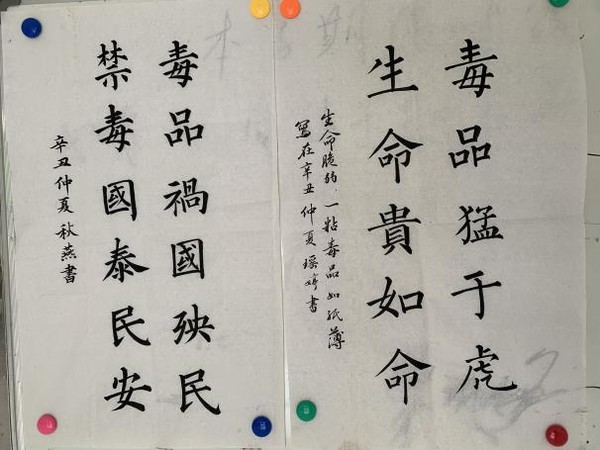 毒品猛于虎
生命貴如命
生命脆弱.一粘毒品如紙薄
寫在辛丑仲夏瑶婷書
毒品禍國殃民
禁毒國泰民安
辛丑仲夏秋燕書